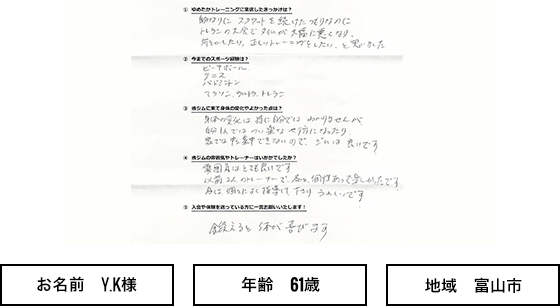 ① ゆめたかトレーニングに来店したきっかけは？
自分なりに スクワットを続けたつもりなのに
トレランの大会でタイムが大幅に悪くなり、
何とかしたい、正しいトレーニングをしたい、と思いました
② 今までのスポーツ経験は？
ビーチボール
テニス
バドミントン
マラソン、ウルトラ、トレラン
③ 当ジムに来て身体の変化やよかった点は？
身体の変化は特に自分では わかりませんが
自分1人では つい楽な やり方になったり、
家では集中できないので、ジムは良いです
④ 当ジムの雰囲気やトレーナーはいかがでしたか？
雰囲気はとても良いです
以前2人のトレーナーで、各々、個性あって楽しかったです
指導して下さり うれしいです
⑤ 入会や体験を迷っている方に一言お願いいたします！
鍛えると 体が 喜びます
お名前 Y.K様
年齢 61歳
地域 富山市